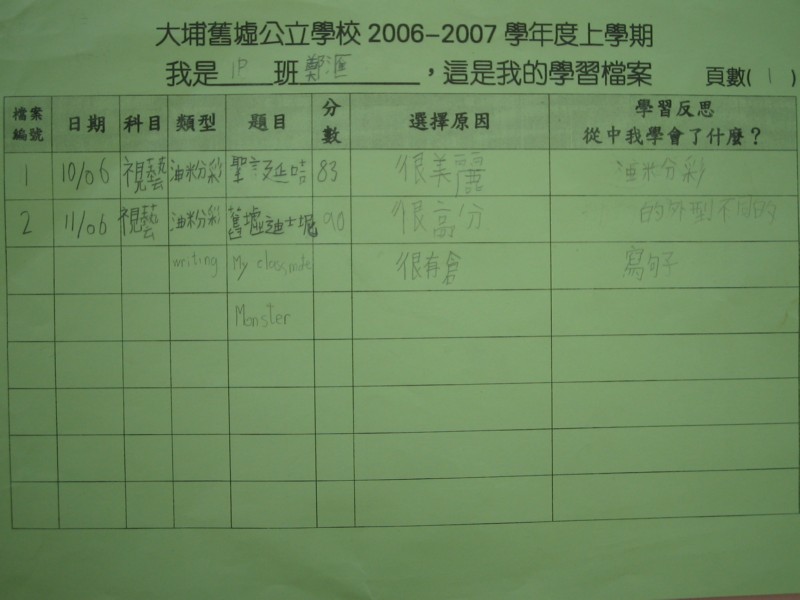 大埔舊墟公立學校 2006-2007 學年度上學期
我是 1P 班 鄭滙 ，這是我的學習檔案 頁數( 1 )
檔案編號 日期 科目 類型 題目 分數 選擇原因 學習反思 從中我學會了什麼？
1 10/06 視藝 油粉彩 聖誕 83 很美麗 油粉彩
2 11/06 視藝 油粉彩 舊墟迪士尼 90 很高分 的外型不同的
writing My classmate 很有 寫句子
Monster